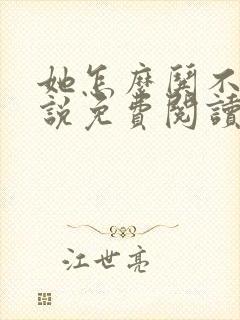 她怎麼鬨不
說免費閱讀
江世亮